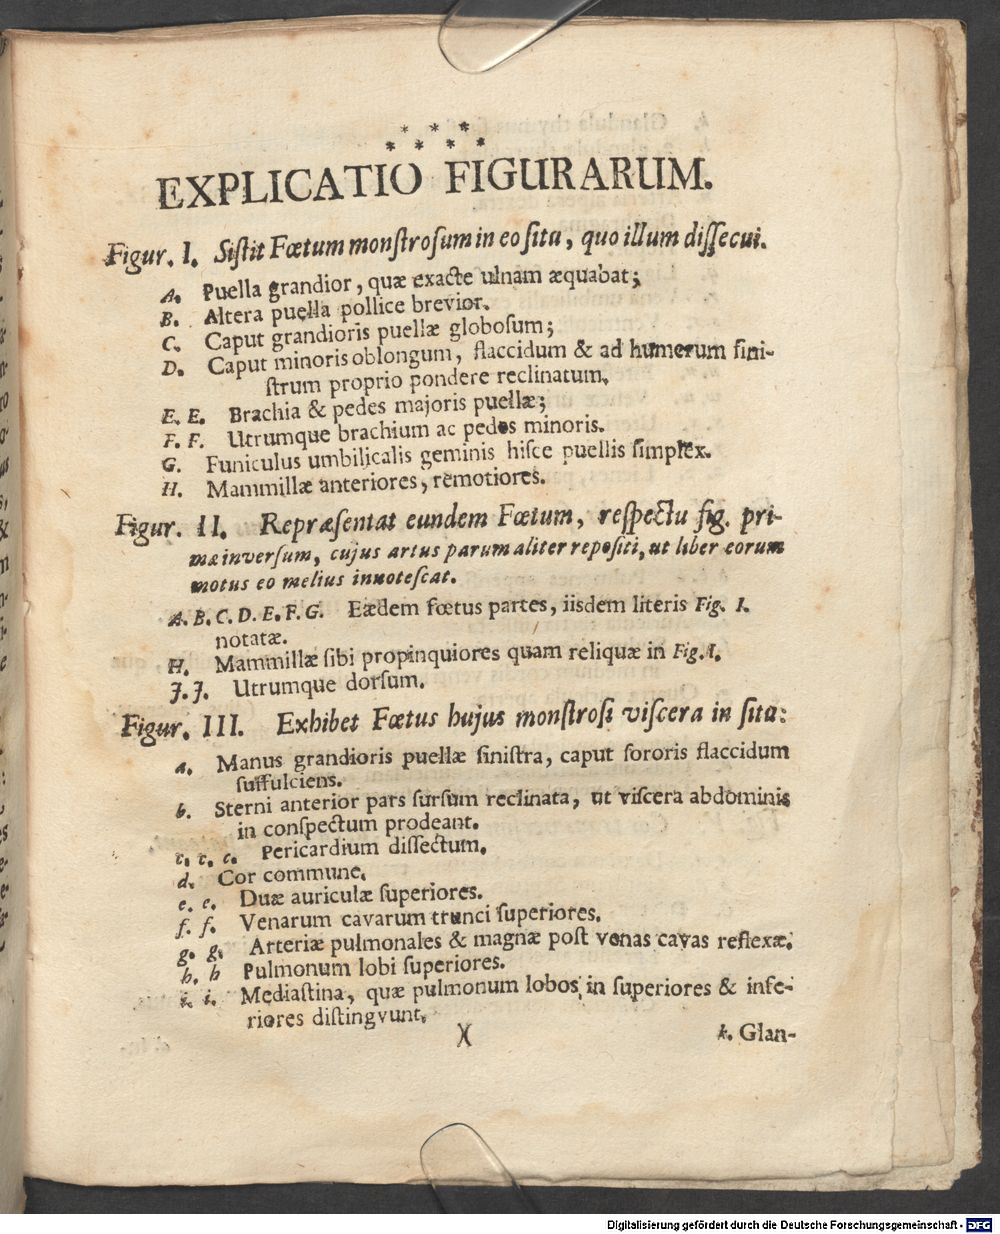 * * *
* * * *
EXPLICATIO FIGURARUM.
Figur. I. Siſtit Fœtum monſtroſum in eo ſita, quo illum diſſecui.
A. Puella grandior, quæ exacte ulnam æquabat;
B. Altera puella pollice brevior.
C. Caput grandioris puellæ globoſum;
D. Caput minoris oblongum, flaccidum & ad humerum ſini-
ſtrum proprio pondere reclinatum.
E. E. Brachia & pedes majoris puellæ;
F. F. Utrumque brachium ac pedes minoris.
G. Funiculus umbilicalis geminis hiſce puellis ſimplex.
H. Mammillæ anteriores, remotiores.
Figur. II. Repræſentat eundem Fœtum, reſpectu fig. pri-
mæ inverſum, cujus artus parum aliter repoſiti, ut liber eorum
motus eo melius innoteſcat.
A. B. C. D. E. F. G. Eædem fœtus partes, iisdem literis Fig. I.
notatæ.
H. Mammillæ ſibi propinquiores quam reliquæ in Fig. I.
J. J. Utrumque dorſum.
Figur. III. Exhibet Fœtus hujus monſtroſi viſcera in ſita:
a. Manus grandioris puellæ ſiniſtra, caput ſororis flaccidum
ſuffulciens.
b. Sterni anterior pars ſurſum reclinata, ut viſcera abdominis
in conſpectum prodeant.
c. c. c. Pericardium diſſectum.
d. Cor commune.
e. e. Duæ auriculæ ſuperiores.
f. f. Venarum cavarum trunci ſuperiores.
g. g. Arteriæ pulmonales & magnæ poſt venas cavas reflexæ.
h. h Pulmonum lobi ſuperiores.
i. i. Mediaſtina, quæ pulmonum lobos in ſuperiores & infe-
riores diſtingvunt.
)( k. Glan-
Digitalisierung gefördert durch die Deutsche Forschungsgemeinschaft - DFG